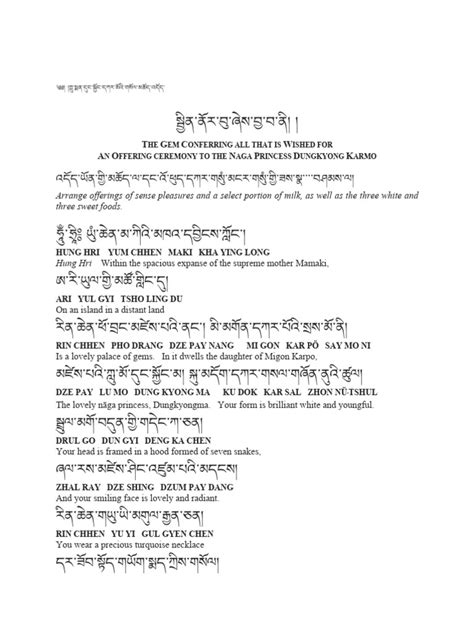 ༄༅། །ཀླུ་སྨན་དུང་སྐྱོང་དཀར་མོའི་གསོལ་མཆོད་འདོད་
སྦྱིན་ནོར་བུ་ཞེས་བྱ་བ་ནི། །
THE GEM CONFERRING ALL THAT IS WISHED FOR
AN OFFERING CEREMONY TO THE NAGA PRINCESS DUNGKYONG KARMO
འདོད་ཡོན་གྱི་མཆོད་པ་དང་འོ་ཕུད་དཀར་གསུཾ་མངར་གསུཾ་གྱི་ཟས་སྣ་་་་བཤམས་ལ།
Arrange offerings of sense pleasures and a select portion of milk, as well as the three white and
three sweet foods.
ཧཱུྃ་ཧྲཱིཿ ཡུཾ་ཆེན་མ་ཀིའི་མཁའ་དབྱིངས་ཀློང་།
HUNG HRI YUM CHHEN MAKI KHA YING LONG
Hung Hri Within the spacious expanse of the supreme mother Mamaki,
ཨ་རི་ཡུལ་གྱི་མཚོ་གླིང་དུ།
ARI YUL GYI TSHO LING DU
On an island in a distant land
རིན་ཆེན་ཕོ་བྲང་མཛེས་པའི་ནང་། མི་མགོན་དཀར་པོའི་སྲས་མོ་ནི།
RIN CHHEN PHO DRANG DZE PAY NANG MI GON KAR PÖ SAY MO NI
Is a lovely palace of gems. In it dwells the daughter of Migon Karpo,
མཛེས་པའི་ཀླུ་མོ་དུང་སྐྱོང་མ། སྐུ་མདོག་དཀར་གསལ་གཞོན་ནུའི་ཚུལ།
DZE PAY LU MO DUNG KYONG MA KU DOK KAR SAL ZHON NÜ-TSHUL
The lovely nāga princess, Dungkyongma. Your form is brilliant white and youngful.
སྦྲུལ་མགོ་བདུན་གྱི་གདེང་ཀ་ཅན།
DRUL GO DUN GYI DENG KA CHEN
Your head is framed in a hood formed of seven snakes,
ཞལ་རས་མཛེས་ཤིང་འཛུམ་པའི་མདངས།
ZHAL RAY DZE SHING DZUM PAY DANG
And your smiling face is lovely and radiant.
རིན་ཆེན་གཡུ་ཡི་མགུལ་རྒྱན་ཅན།
RIN CHHEN YU YI GUL GYEN CHEN
You wear a precious turquoise necklace
དར་ཟབ་སྟོད་གཡོག་སྨད་དཀྲིས་གསོལ།